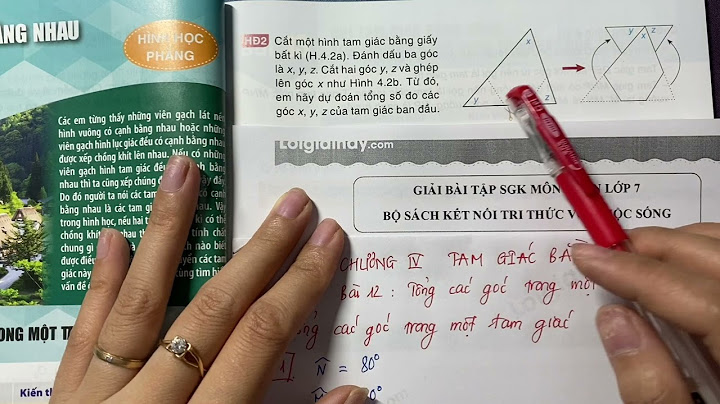 ẰNG NHAU
HÌNH HỌC
PHẲNG
Các em từng thấy những viên gạch lát nền
hình vuông có cạnh bằng nhau hoặc những
viên gạch hình lục giác đều có cạnh bằng nhau
được xếp chồng khít lên nhau. Nếu có những
viên gạch hình tam giác đều cạnh bằng
nhau thì ta cũng xếp chúng đầy đấy.
Do đó người ta nói các tam có cạnh
bằng nhau là các tam giác nhau. Vậy
trong hình học, nếu hai t có thể
chồng khít nhau th tính chất
chung gì nào biết
được điều yến các tam
giác này cùng tìm hi
vấn đề
ONG MỘT T
Kiến th
HĐ2 Cắt một hình tam giác bằng giấy
bất kì (H.4.2a). Đánh dấu ba góc
là x, y, z. Cắt hai góc y, z và ghép
lên góc x như Hình 4.2b. Từ đó,
em hãy dự đoán tổng số đo các
góc x, y, z của tam giác ban đầu.
x
y
z
y
x
z
Loigiaihay.com
GIẢI BÀI TẬP SGK MÔN ÁN LỚP 7
BỘ SÁCH KẾT NỐI TRI THỨC V ỘC SỐNG
CHƯƠNG IV TAM GIÁC BẰ
Bài 12 : Tổng các góc trong một
ng các góc trong một tam giác
1] N̂ = 80°
0°